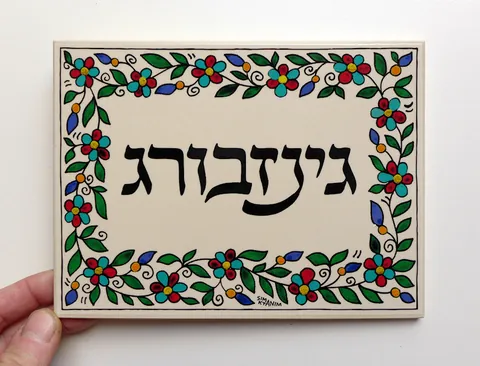 גינזבורג
SIMA
KYANIM